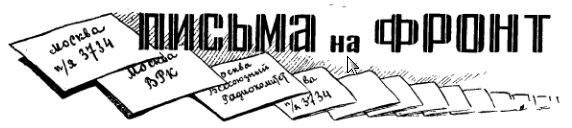 ПИСЬМА на ФРОНТ
Москва
п/я 3734
Москва
ВРК
осква
Всесоюзный
Радиокомитет
ва
п/я 3734